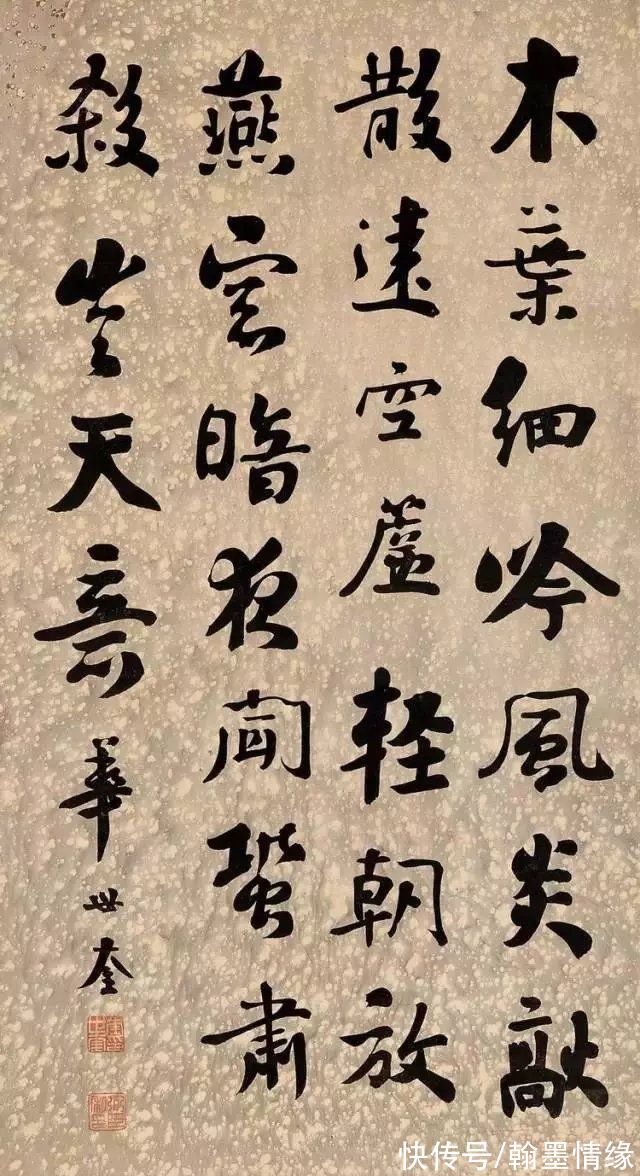 木葉細吟風炎歊
散遠空簾輕朝放
燕窓暗夜聞蛩肅
殺豈天意
華世奎
快传号/翰墨情缘